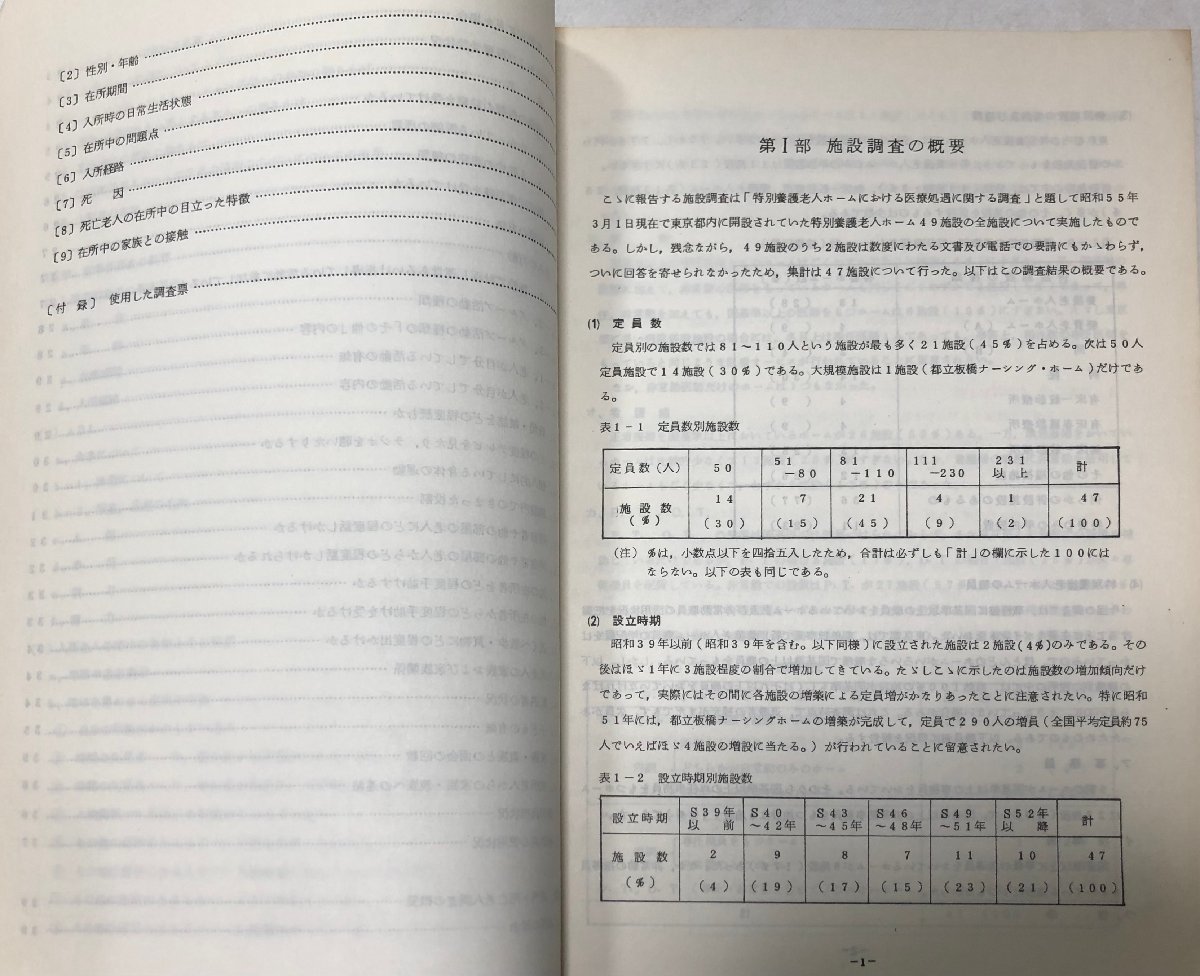 〔2〕性別・年齢
〔3〕在所期間
〔4〕入所時の日常生活状態
〔5〕在所中の問題点
〔6〕入所経路
〔7〕死　因
〔8〕死亡老人の在所中の目立った特徴
〔9〕在所中の家族との接触
〔付　録〕　使用した調査票
第Ⅰ部　施設調査の概要
こゝに報告する施設調査は「特別養護老人ホームにおける医療処遇に関する調査」と題して昭和５５年
３月１日現在で東京都内に開設されていた特別養護老人ホーム４９施設の全施設について実施したもので
ある。しかし，残念ながら，４９施設のうち２施設は数度にわたる文書及び電話での要請にもかゝわらず，
ついに回答を寄せられなかったため，集計は４７施設について行った。以下はこの調査結果の概要である。
(1)　定　員　数
定員別の施設数では８１～１１０人という施設が最も多く２１施設（４５％）を占める。次は５０人
定員施設で１４施設（３０％）である。大規模施設は１施設（都立板橋ナーシング・ホーム）だけであ
る。
表１－１　定員数別施設数
定員数（人）　５０　５１－８０　８１－１１０　１１１－２３０　２３１以上　計
施　設　数　１４　７　２１　４　１　４７
（％）　（３０）　（１５）　（４５）　（９）　（２）　（１００）
（注）　％は，小数点以下を四捨五入したため，合計は必ずしも「計」の欄に示した１００には
ならない。以下の表も同じである。
(2)　設立時期
昭和３９年以前（昭和３９年を含む。以下同様）に設立された施設は２施設（４％）のみである。その
後はほゞ１年に３施設程度の割合で増加してきている。たゞしこゝに示したのは施設数の増加傾向だけ
であって，実際にはその間に各施設の増築による定員増がかなりあったことに注意されたい。特に昭和
５１年には，都立板橋ナーシングホームの増築が完成して，定員で２９０人の増員（全国平均定員約75
人でいえばほゞ４施設の増設に当たる。）が行われていることに留意されたい。
表１－２　設立時期別施設数
設立時期　Ｓ３９年以　前　Ｓ４０～４２年　Ｓ４３～４５年　Ｓ４６～４８年　Ｓ４９～５１年　Ｓ５２年以　降　計
施　設　数　２　９　８　７　１１　１０　４７
（％）　（４）　（１９）　（１７）　（１５）　（２３）　（２１）　（１００）
－１－